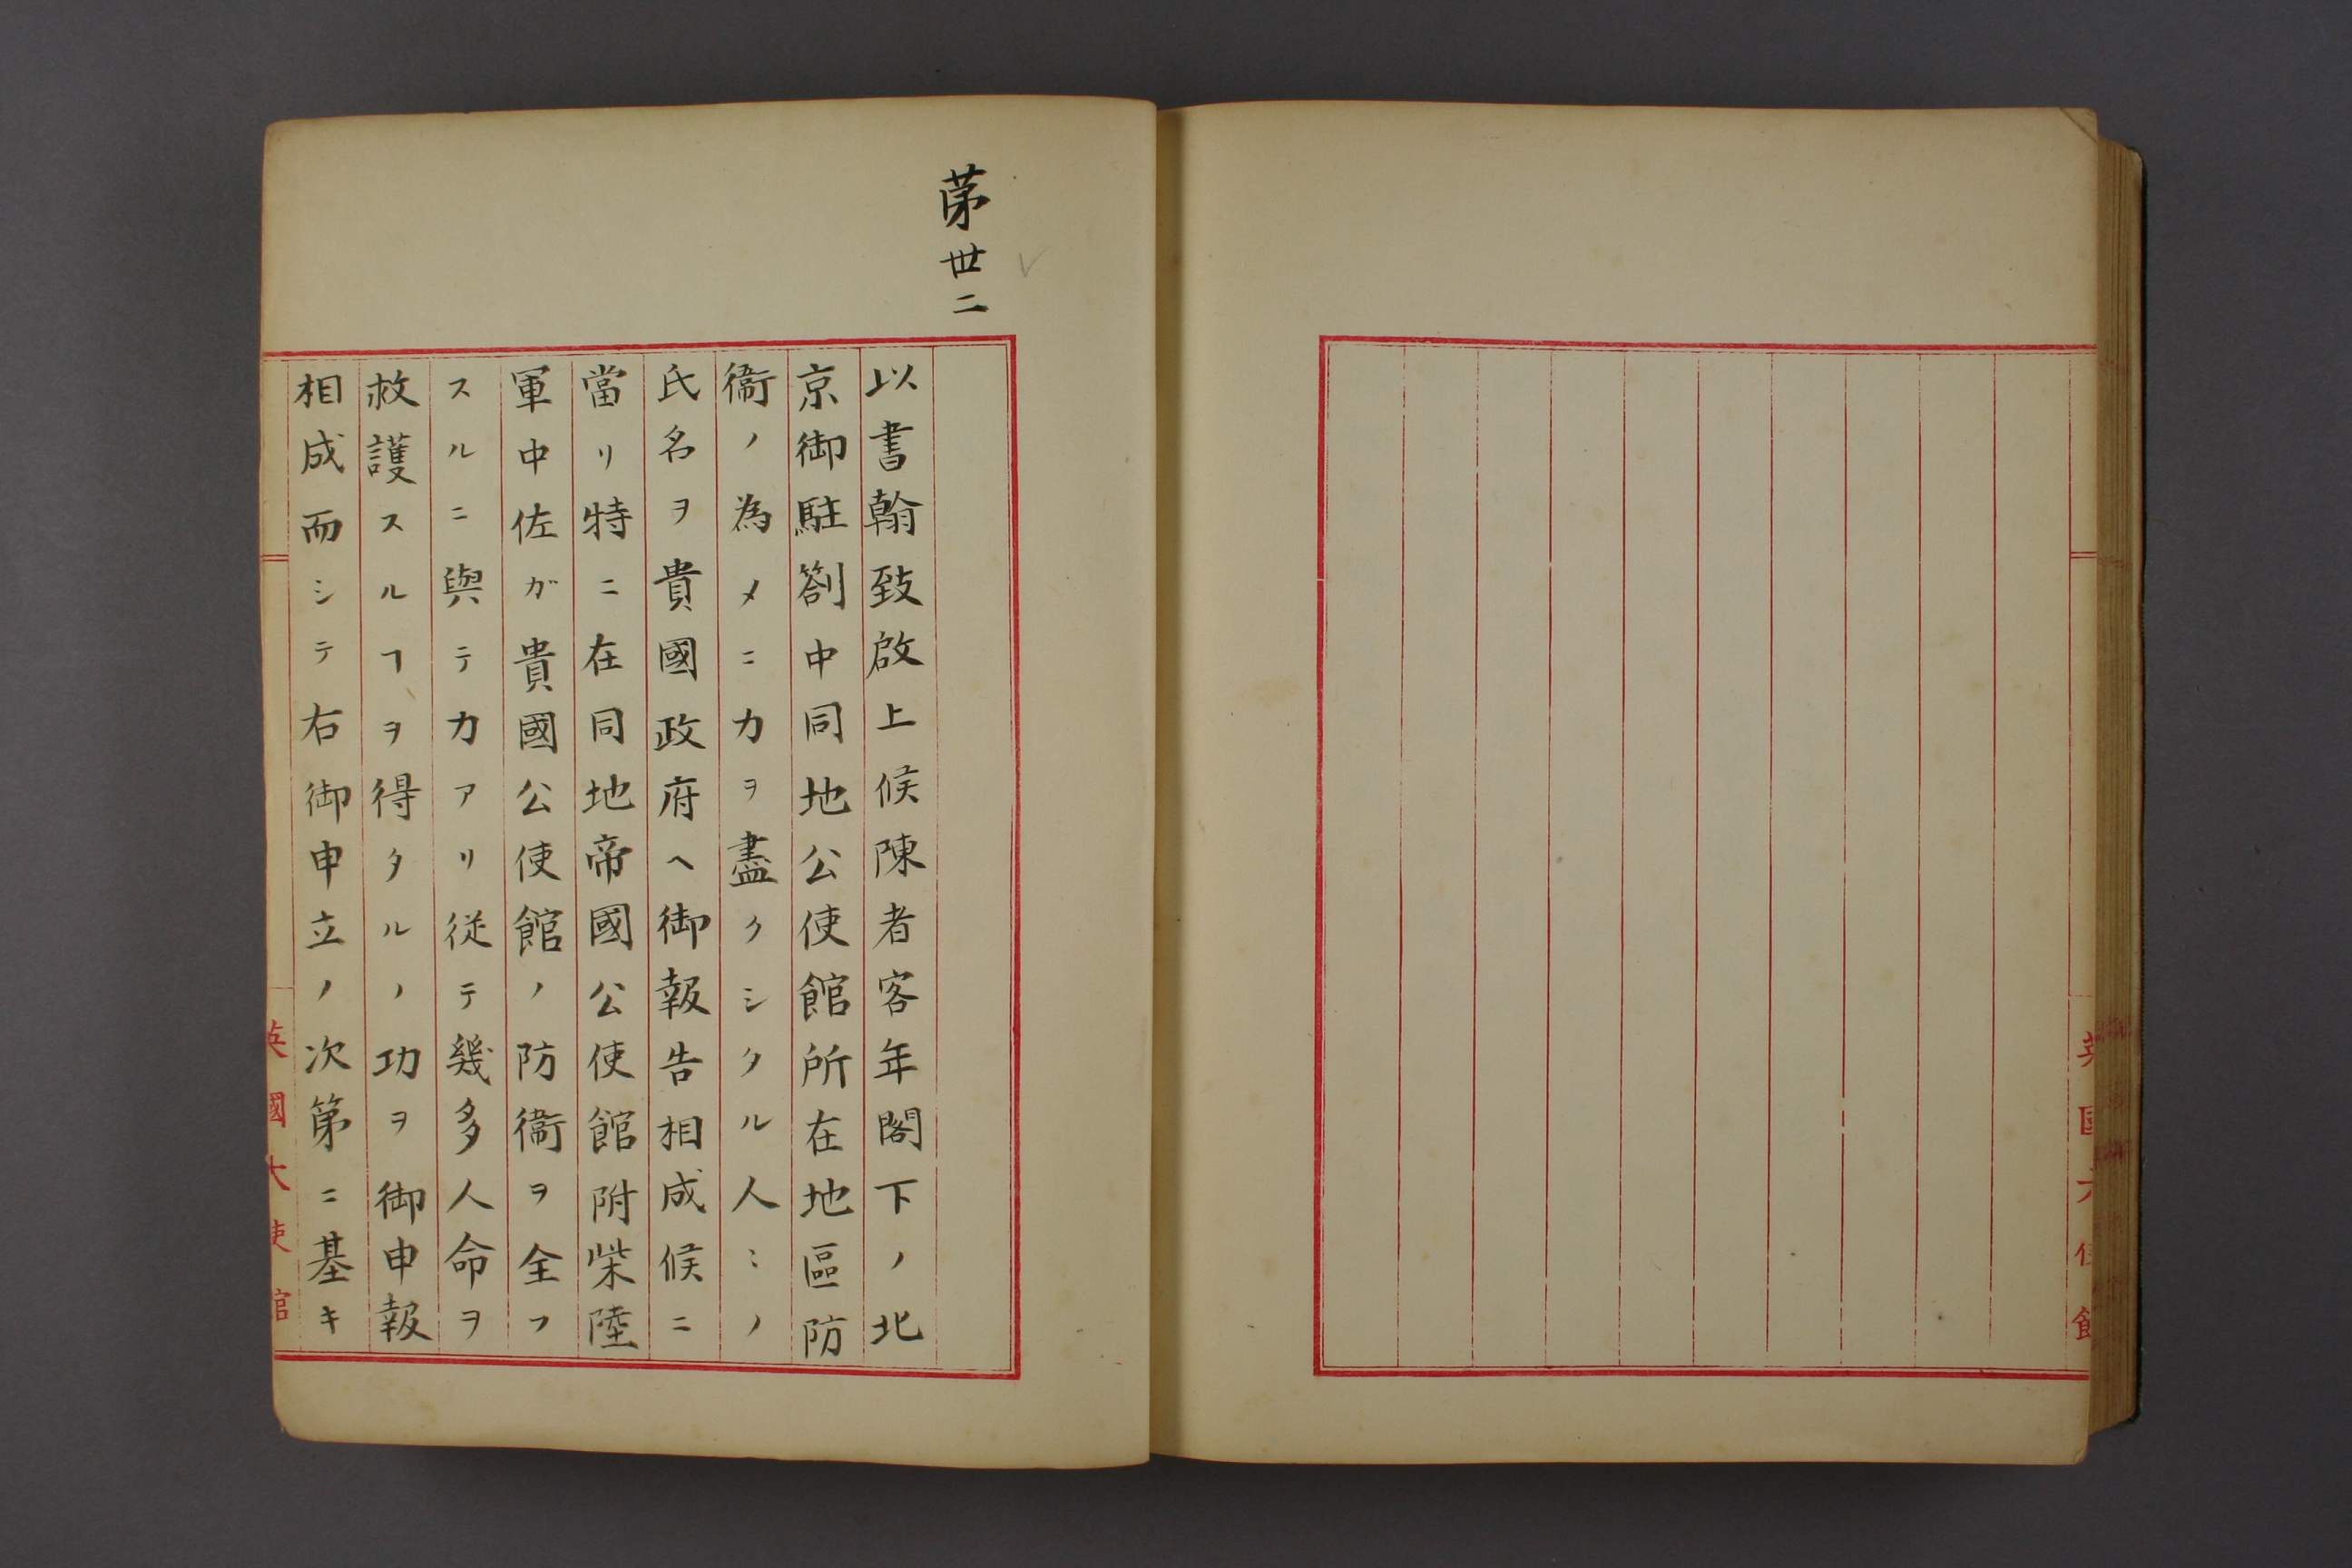 第卅二
以書翰致啟上候陳者客年閣下ノ北
京御駐劄中同地公使館所在地區防
衞ノ為メニ力ヲ盡クシタル人〻ノ
氏名ヲ貴國政府ヘ御報告相成候ニ
當リ特ニ在同地帝國公使館附柴陸
軍中佐ガ貴國公使館ノ防衞ヲ全フ
スルニ與テ力アリ従テ幾多人命ヲ
救護スルヿヲ得タルノ功ヲ御申報
相成而シテ右御申立ノ次第ニ基キ
英國大使館
英國大使館